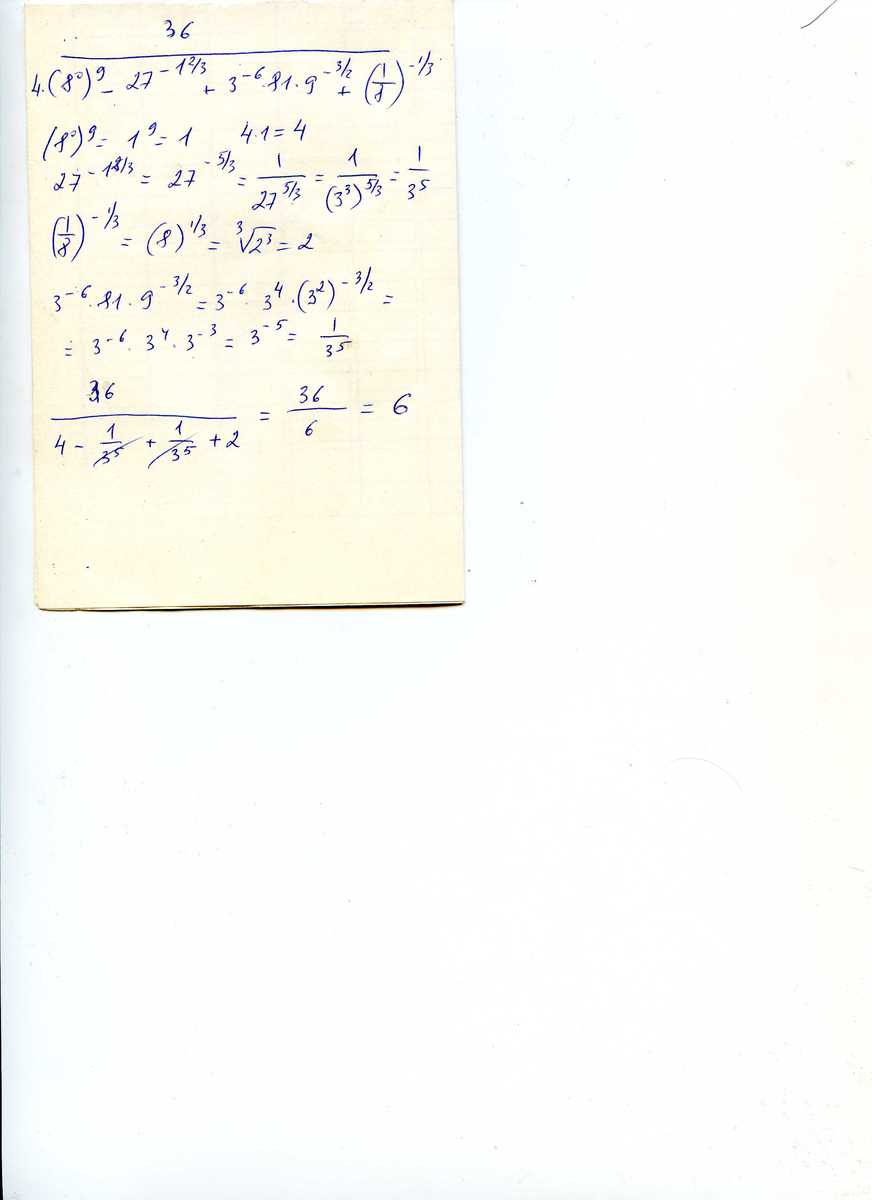 36
4·(8⁰)⁹ - 27^(-1 2/3) + 3⁻⁶·81·9^(-3/2) + (1/8)^(-1/3)
(8⁰)⁹ = 1⁹ = 1 4·1 = 4
27^(-1 2/3) = 27^(-5/3) = 1/27^(5/3) = 1/(3³)^(5/3) = 1/3⁵
(1/8)^(-1/3) = (8)^(1/3) = ³√2³ = 2
3⁻⁶·81·9^(-3/2) = 3⁻⁶·3⁴·(3²)^(-3/2) =
= 3⁻⁶·3⁴·3⁻³ = 3⁻⁵ = 1/3⁵
36/(4 - 1/3⁵ + 1/3⁵ + 2) = 36/6 = 6